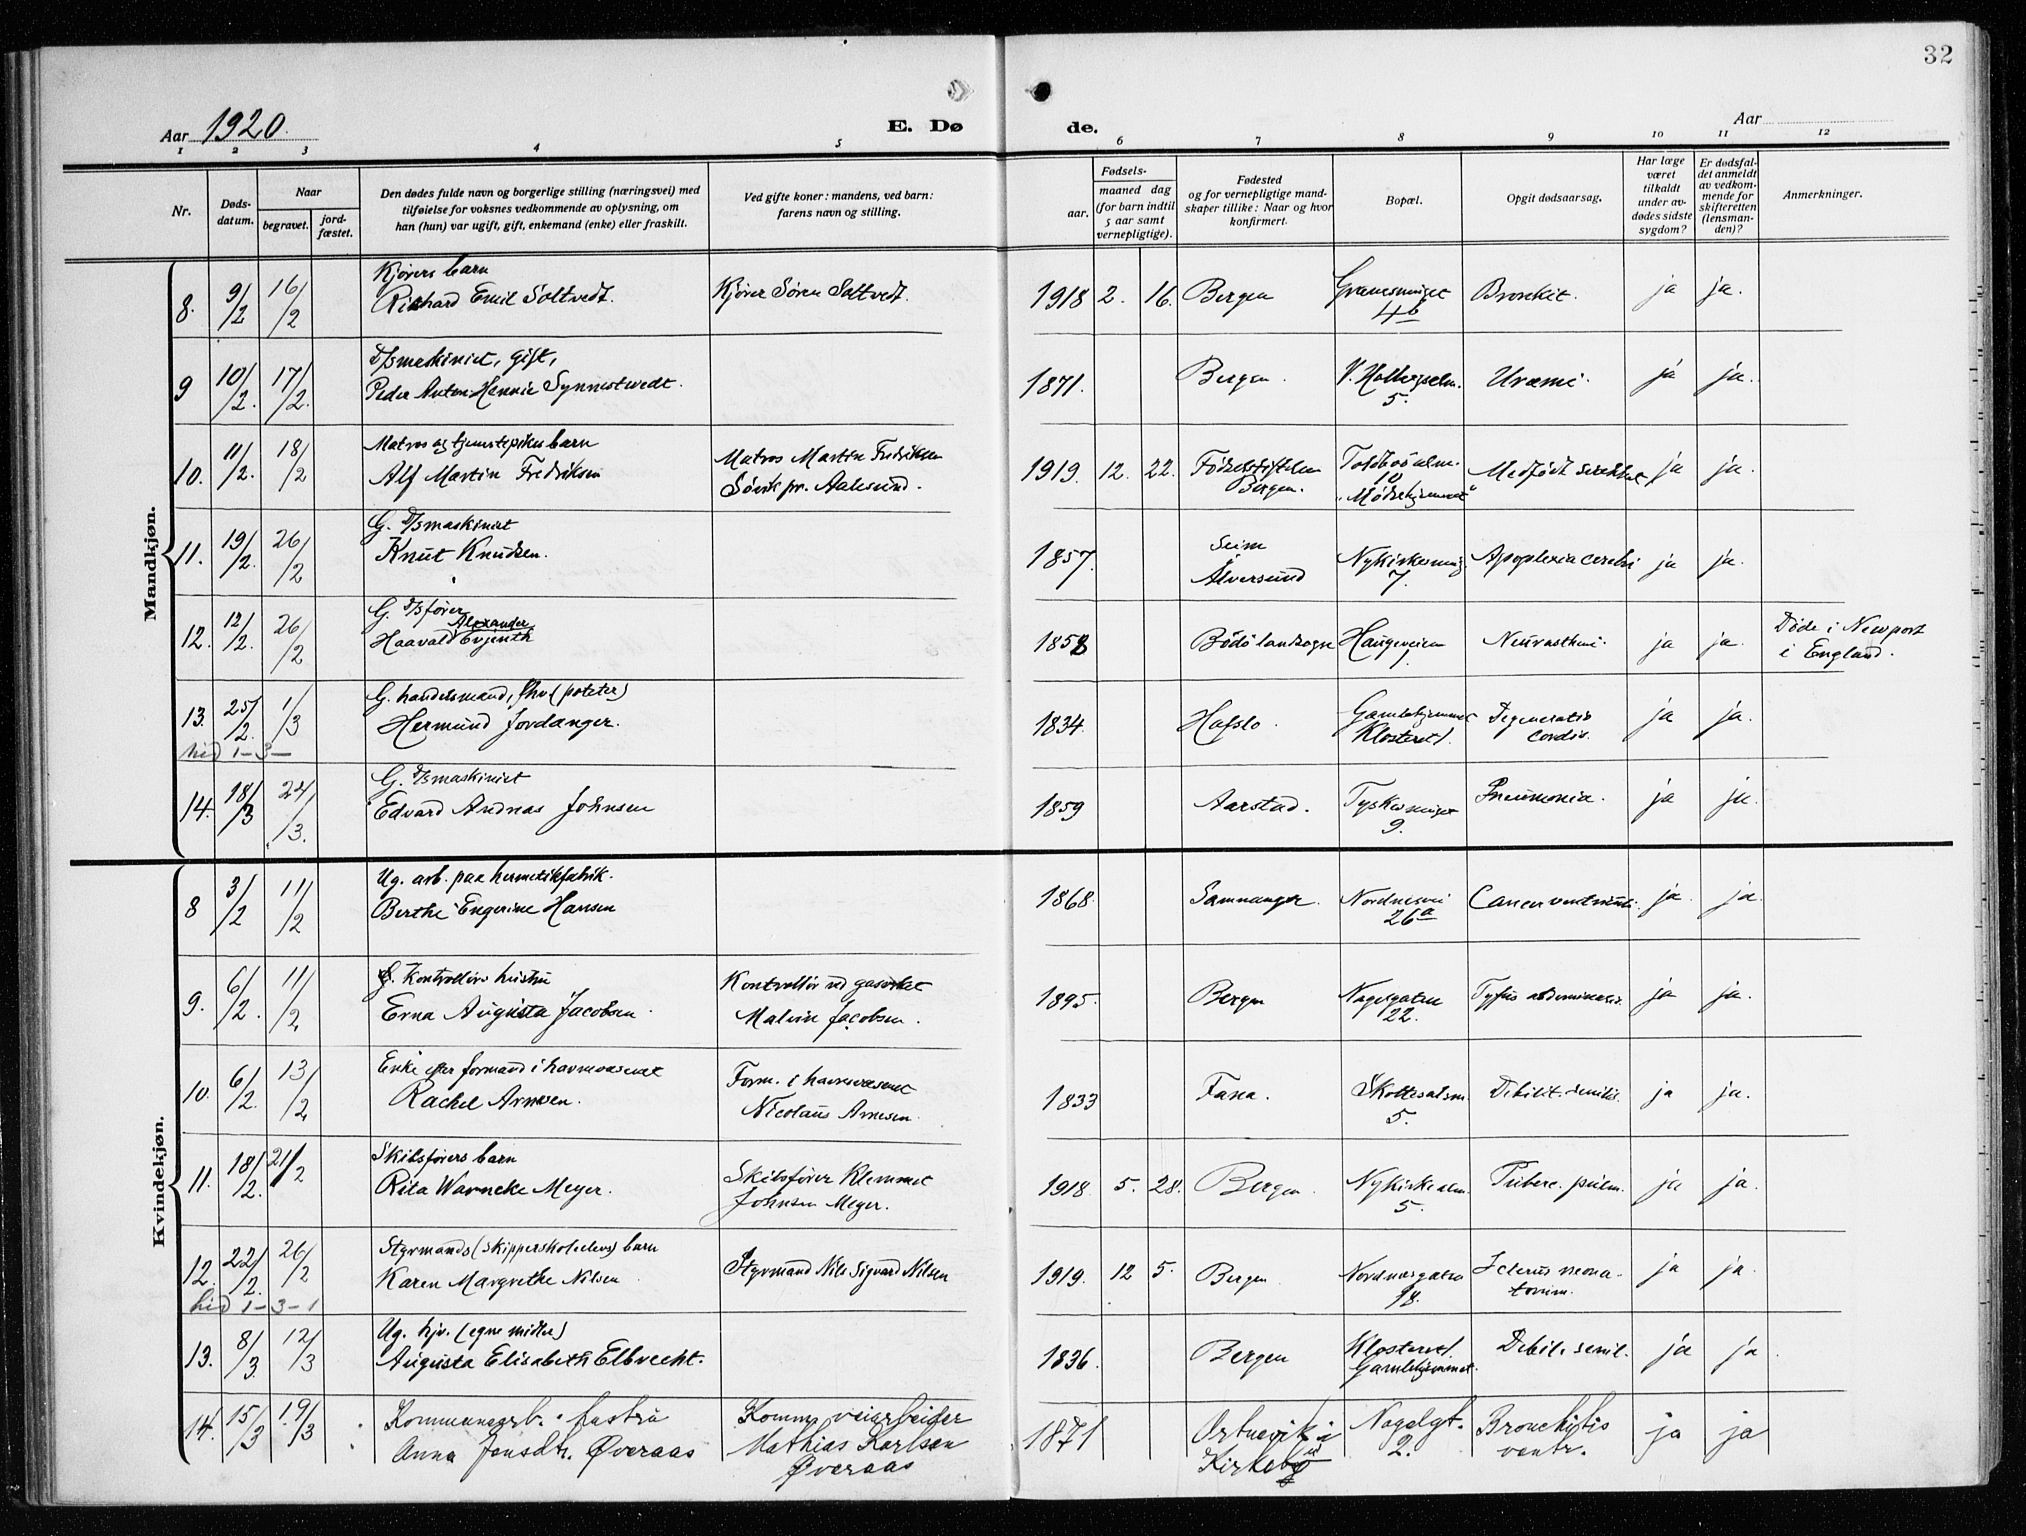 32
Aar 1920.
E. Dø
de.
Aar
1 2 3 4 5 6 7 8 9 10 11 12
Nr.
Døds-
datum.
Naar
begravet.
jord-
fæstet.
Den dødes fulde navn og borgerlige stilling (næringsvei) med
tilføielse for voksnes vedkommende av oplysning, om
han (hun) var ugift, gift, enkemand (enke) eller fraskilt.
Ved gifte koner: mandens, ved barn:
farens navn og stilling.
Fødsels-
aar.
maaned dag
(for barn indtil
5 aar samt
vernepligtige).
Fødested
og for vernepligtige mand-
skaper tillike: Naar og hvor
konfirmert.
Bopæl.
Opgit dødsaarsag.
Har læge
været
tilkaldt
under av-
dødes sidste
sygdom?
Er dødsfal-
det anmeldt
av vedkom-
mende for
skifteretten
(lensman-
den)?
Anmerkninger.
Mandkjøn.
Kjørers barn
8. 9/2 16/2 Richard Emil Soltvedt. Kjører Søren Soltvedt. 1918 2. 16. Bergen 4b Bronkit. ja ja.
D/smaskinist, gift,
9 10/2. 17/2. Peder Anton Hennie Synnestvedt. 1871. Bergen. V. Holbergsalm. 5. Uræmi. ja ja.
Matros og tjenestepikes barn
10. 11/2. 18/2 Alf Martin Fredriksen Matros Martin Fredriksen
Søvik pr. Aalesund. 1919. 12. 22. Fødselsstiftelsen
Bergen. Toldbodalm.
10
"Mødrehjemmet" Medfødt svakhet ja ja.
G. D/smaskinist
11. 19/2. 26/2 Knut Knudsen. 1857. Seim
Alversund Nykirkesmug
7. Apoplexia cerebri ja ja.
G. D/sfører
Alexander
12. 12/2. 26/2 Haavald Evjenth 1858 Bodö landsogn Haugeveien
1. Neurastheni. ja ja. Døde i Newport
i England.
G. handelsmand, (poteter)
13. 25/2. 1/3 Hermund Jordanger. 1834. Hafslo Gamlehjemmet
Klosteret. Degeneratio
cordis. ja ja.
hid 1-3-
G. D/smaskinist
14. 18/3 24/3. Edvard Andreas Johnsen 1859 Aarstad. Tyskesmuget
9. Pneumonia. ja ja.
Kvindekjøn.
Ug. arb. paa hermetikfabrik.
8 3/2 11/2 Berthe Engerine Hansen 1868. Samnanger. Nordnesvei
26a Cancer ventriculi. ja ja.
G. Kontrollørs hustru
9. 6/2. 11/2 Erna Augusta Jacobsen. Kontrollör ved gasverket
Malvin Jacobsen. 1895. Bergen Nagelgaten
22. Tyfus abdominalis. ja ja.
Enke efter formand i havnevæsenet
10. 6/2. 13/2 Rachel Arnesen. Form. i havnevæsenet
Nicolaus Arnesen. 1833 Fana. Skottesalm.
5. Debilit. senilis. ja ja.
Skibsførers barn
11. 18/2. 21/2 Rita Warncke Meyer. Skibsfører Klemmet
Johnsen Meyer. 1918. 5. 28. Bergen. Nykirkealm.
5. Tuberc. pulm. ja ja.
Styrmands (skipperskoleelevs) barn
12. 22/2. 26/2 Karen Margrethe Nilsen Styrmand Nils Sigvard Nilsen 1919. 12 5. Bergen. Nordnesgaten
18. Icterus neona-
torum. ja ja.
hid 1-3-1
Ug. hjv. (egne midler)
13. 8/3. 12/3 Augusta Elisabeth Elbrecht. 1836. Bergen Klosteret.
Gamlehjemmet. Debil. senil. ja ja
14. 15/3 19/3 Kommunearb. hustru
Anna Jonsdtr. Øveraas Komm. veiarbeider
Mathias Karlsen
Øveraas 1871 Ortnevik i
Kirkebø Nagelgt.
2. Bronchitis
ja ja